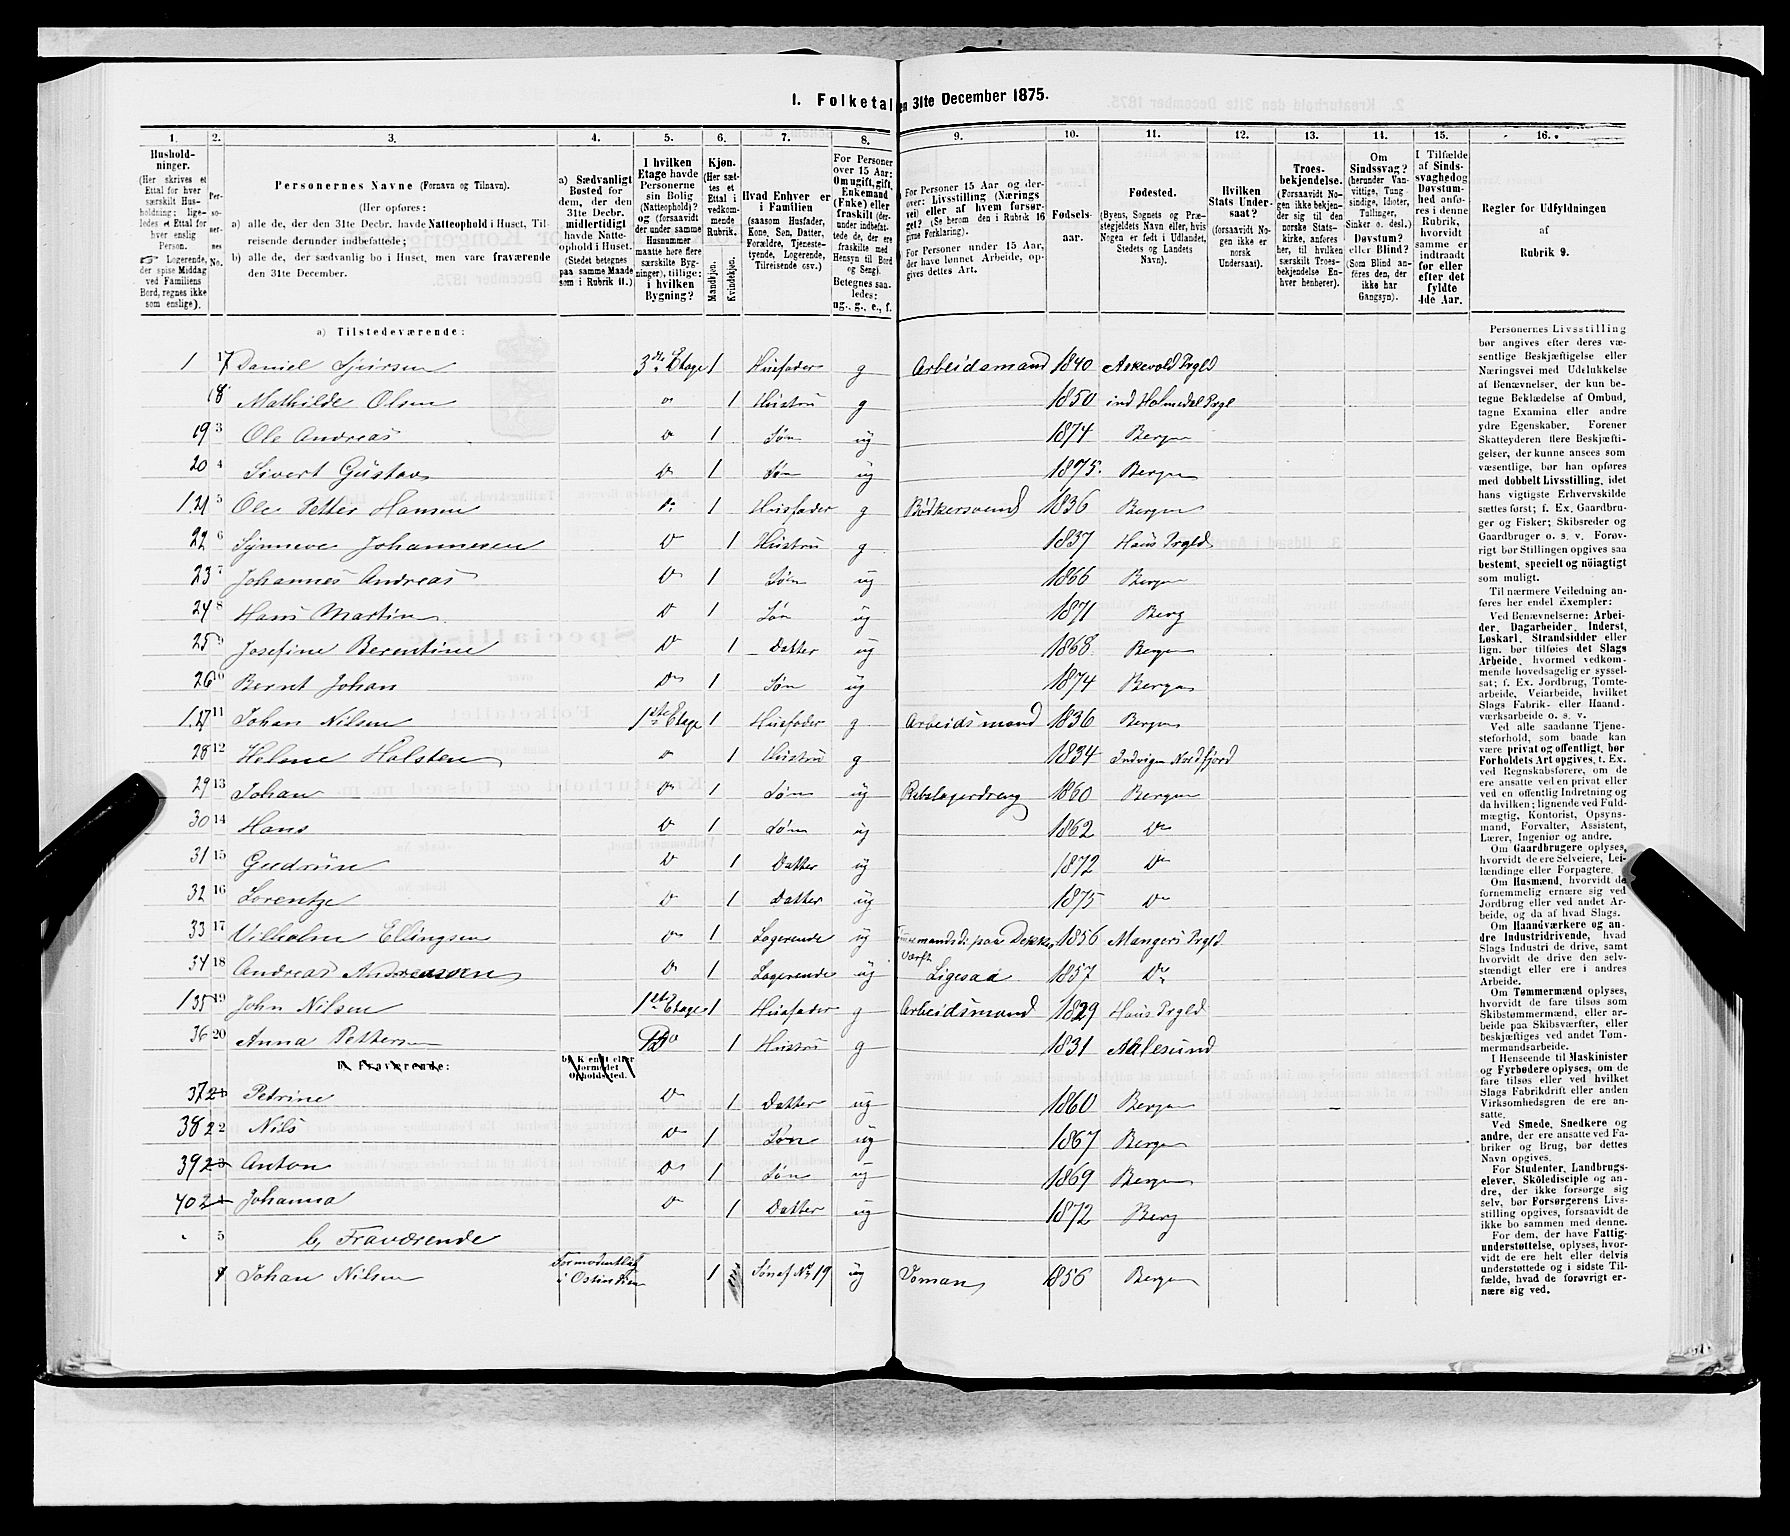 1. Folketal den 31te December 1875.
1. 2. 3. 4. 5. 6. 7. 8. 9. 10. 11. 12. 13. 14. 15. 16.
Hushold-
ninger.
(Her skrives et
Ettal for hver
særskilt Hus-
holdning; lige-
ledes et Ettal for
hver enslig
Person.
Logerende,
der spise Middag
ved Familiens
Bord, regnes ikke
som enslige).
Per-
so-
ner-
nes
No.
Personernes Navne (Fornavn og Tilnavn).
(Her opføres:
a) alle de, der den 31te Decbr. havde Natteophold i Huset, Til-
reisende derunder indbefattede;
b) alle de, der sædvanlig bo i Huset, men vare fraværende
den 31te December.
a) Sædvanligt
Bosted for
dem, der den
31te Decbr.
midlertidigt
havde Natte-
ophold i Huset.
(Stedet betegnes
paa samme Maade
som i Rubrik 11.)
I hvilken
Etage havde
Personerne
sin Bolig
(Natteophold)?
og (forsaavidt
der under samme
Husnummer
maatte høre flere
særskilte Byg-
ninger), tillige:
i hvilken
Bygning?
Kjøn.
(Her sæt-
tes et
Ettal i
vedkom-
mende
Rubrik.
Mandkjøn.
Kvindekjøn.
Hvad Enhver er
i Familien
(saasom Husfader,
Kone, Søn, Datter,
Forældre, Tjeneste-
tyende, Logerende,
Tilreisende osv.)
For Personer
over 15 Aar:
Om ugift, gift,
Enkemand
(Enke) eller
fraskilt (der-
under indbefat-
tede de, der ere
fraskilte med
Hensyn til Bord
og Seng).
Betegnes saa-
ledes:
ug., g., e., f.
For Personer 15 Aar og der-
over: Livsstilling (Nærings
vei) eller af hvem forsør-
get? (Se herom den i Rubrik 16
givne Forklaring).
For Personer under 15 Aar,
der have lønnet Arbeide, op-
gives dettes Art.
Fødsels-
aar.
Fødested.
(Byens, Sognets og Præ-
stegjeldets Navn eller, hvis
Nogen er født i Udlandet,
Stedets og Landets
Navn).
Hvilken
Stats Under-
saat?
(forsaavidt No-
gen ikke er
norsk
Undersaat).
Troes-
bekjendelse.
(Forsaavidt No-
gen ikke bekjen-
der sig til den
norske Stats-
kirke, anføres
her, til hvilken
særskilt Troes-
bekjendelse En-
hver henhører).
Om
Sindssvag?
(herunder Van-
vittige, Tung-
sindige, Idioter,
Tullinger,
Sinker o. desl.)
Døvstum?
eller Blind?
(Som Blind an-
føres den, der
ikke har
Gangsyn).
I Tilfælde
af Sinds-
svaghed og
Døvstum-
hed anfø-
res i denne
Rubrik,
hvorvidt
samme er
indtraadt
før eller
efter det
fyldte
4de Aar.
Regler for Udfyldningen
af
Rubrik 9.
a) Tilstedeværende:
1 17 Daniel Sjursen 3die Etage 1 Husfader g Arbeidsmand 1840 Askevold Prgld
18 Mathilde Olsen Do 1 Hustru g 1850 ind Holmedal Prgl
19 3 Ole Andreas Do 1 Søn ug 1874 Bergen
20 4 Sivert Gustav Do 1 Søn ug 1875. Bergen
1. 21 5 Ole Petter Hansen Do 1 Husfader g Bødkersvend 1836 Bergen
22 6 Synneve Johannesen Do 1 Hustru g 1837 Haus Prgld
23 7 Johannes Andreas Do 1 Søn ug 1866 Bergen
24 8 Hans Martin Do 1 Søn ug 1871 Berg
25 9 Josefine Berentine Do 1 Datter ug 1868 Bergen
26 10 Bernt Johan Do 1 Søn ug 1874 Bergen
1. 27 11 Johan Nilsen 1ste Etage 1 Husfader g Arbeidsmand 1836 Bergen
28 12 Helene Holsten Do 1 Hustru g 1834 Indvigen Nordfjord
29 13 Johan Do 1 Søn ug Rebslagerdreng 1860 Bergen
30 14 Hans Do 1 Søn ug 1862 Do
31 15 Gudrun Do 1 Datter ug 1872 Do
32 16 Lorentze Do 1 Datter ug 1875 Do
33 17 Vilhelm Ellingsen Do 1 Logerende ug Tømmermandsdr paa Dekkes Værft 1856 Mangers Prgld
34 18 Andreas Andreassen Do 1 Logerende ug Ligesaa 1857 Do
1 35 19 John Nilsen 1ste Etage 1 Husfader g Arbeidsmand 1829 Haus Prgld
36 20 Anna Pettersen Do 1 Hustru g 1831 Aalesund
b) Fraværende: b) Kendt eller
formodet
Opholdssted.
37 21 Petrine Do 1 Datter ug 1860 Bergen
38 22 Nils Do 1 Søn ug 1867 Bergen
39 23 Anton Do 1 Søn ug 1869 Bergen
40 24 Johanna Do 1 Datter ug 1872 Berg
5 b, Fraværende
1 Johan Nilsen Formodentlig i Ostindien 1 Søn af No 19 ug Jomand 1856 Bergen
Personernes Livsstilling
bør angives efter deres væ-
sentlige Beskjæftigelse eller
Næringsvei med Udelukkelse
af Benævnelser, der kun be-
tegne Beklædelse af Ombud,
tagne Examina eller andre
ydre Egenskaber. Forener
Skatteyderen flere Beskjæfti-
gelser, der kunne ansees som
væsentlige, bør han opføres
med dobbelt Livsstilling, idet
hans vigtigste Erhvervskilde
sættes først; f. Ex. Gaardbru-
ger og Fisker; Skibsreder og
Gaardbruger o. s. v. Forøv-
rigt bør Stillingen opgives saa
bestemt, specielt og nöiagtigt
som muligt.
Til nærmere Veiledning an-
føres her endel Exempler:
Ved Benævnelserne: Arbei-
der, Dagarbeider, Inderst,
Løskarl, Strandsidder eller
lign. bør tilføies det Slags
Arbeide, hvormed vedkom-
mende hovedsagelig er syssel-
sat; f. Ex. Jordbrug, Tomte-
arbeide, Veiarbeide, hvilket
Slags Fabrik- eller Haand-
værksarbeide o. s. v.
Ved alle saadanne Tjene-
steforhold, som baade kan
være privat og offentligt, bør
Forholdets Art opgives, t. Ex.
ved Regnskabsførere, om de
ere ansatte ved en privat eller
ved en offentlig Indretning og
da hvilken; lignende ved Fuld-
mægtig, Kontorist, Opsyns-
mand, Forvalter, Assistent,
Lærer, Ingeniør og andre.
Om Gaardbrugere oplyses,
hvorvidt de ere Selveiere, Lei-
lændinge eller Forpagtere.
Om Husmænd, hvorvidt de
fornemmelig ernære sig ved
Jordbrug eller ved andet Ar-
beide, og da af hvad Slags.
Om Haandværkere og an-
dre Industridrivende, hvad
Slags Industri de drive, samt
hvorvidt de drive den selv-
stændigt eller ere i andres
Arbeide.
Om Tømmermænd oplyses,
hvorvidt de fare tilsøs som
Skibstømmermænd, eller ar-
beide paa Skibsværfter, eller
beskjæftiges ved andet Tøm-
mermandsarbeide.
I Henseende til Maskinister
og Fyrbødere oplyses, om de
fare tilsøs eller ved hvilket
Slags Fabrikdrift eller anden
Virksomhedsgren de ere an-
satte.
Ved Smede, Snedkere og
andre, der ere ansatte ved Fa-
briker og Brug, bør dettes
Navn opgives.
For Studenter, Landbrugs-
elever, Skoledisciple og an-
dre, der ikke forsørge sig
selv, bør Forsørgerens Livs-
stilling opgives, forsaavidt de
ikke bo sammen med denne.
For dem, der have Fattig-
understøttelse, oplyses, hvor-
vidt de ere helt eller delvis
understøttede og i sidste Til-
fælde, hvad de forøvrigt er-
nære sig ved.